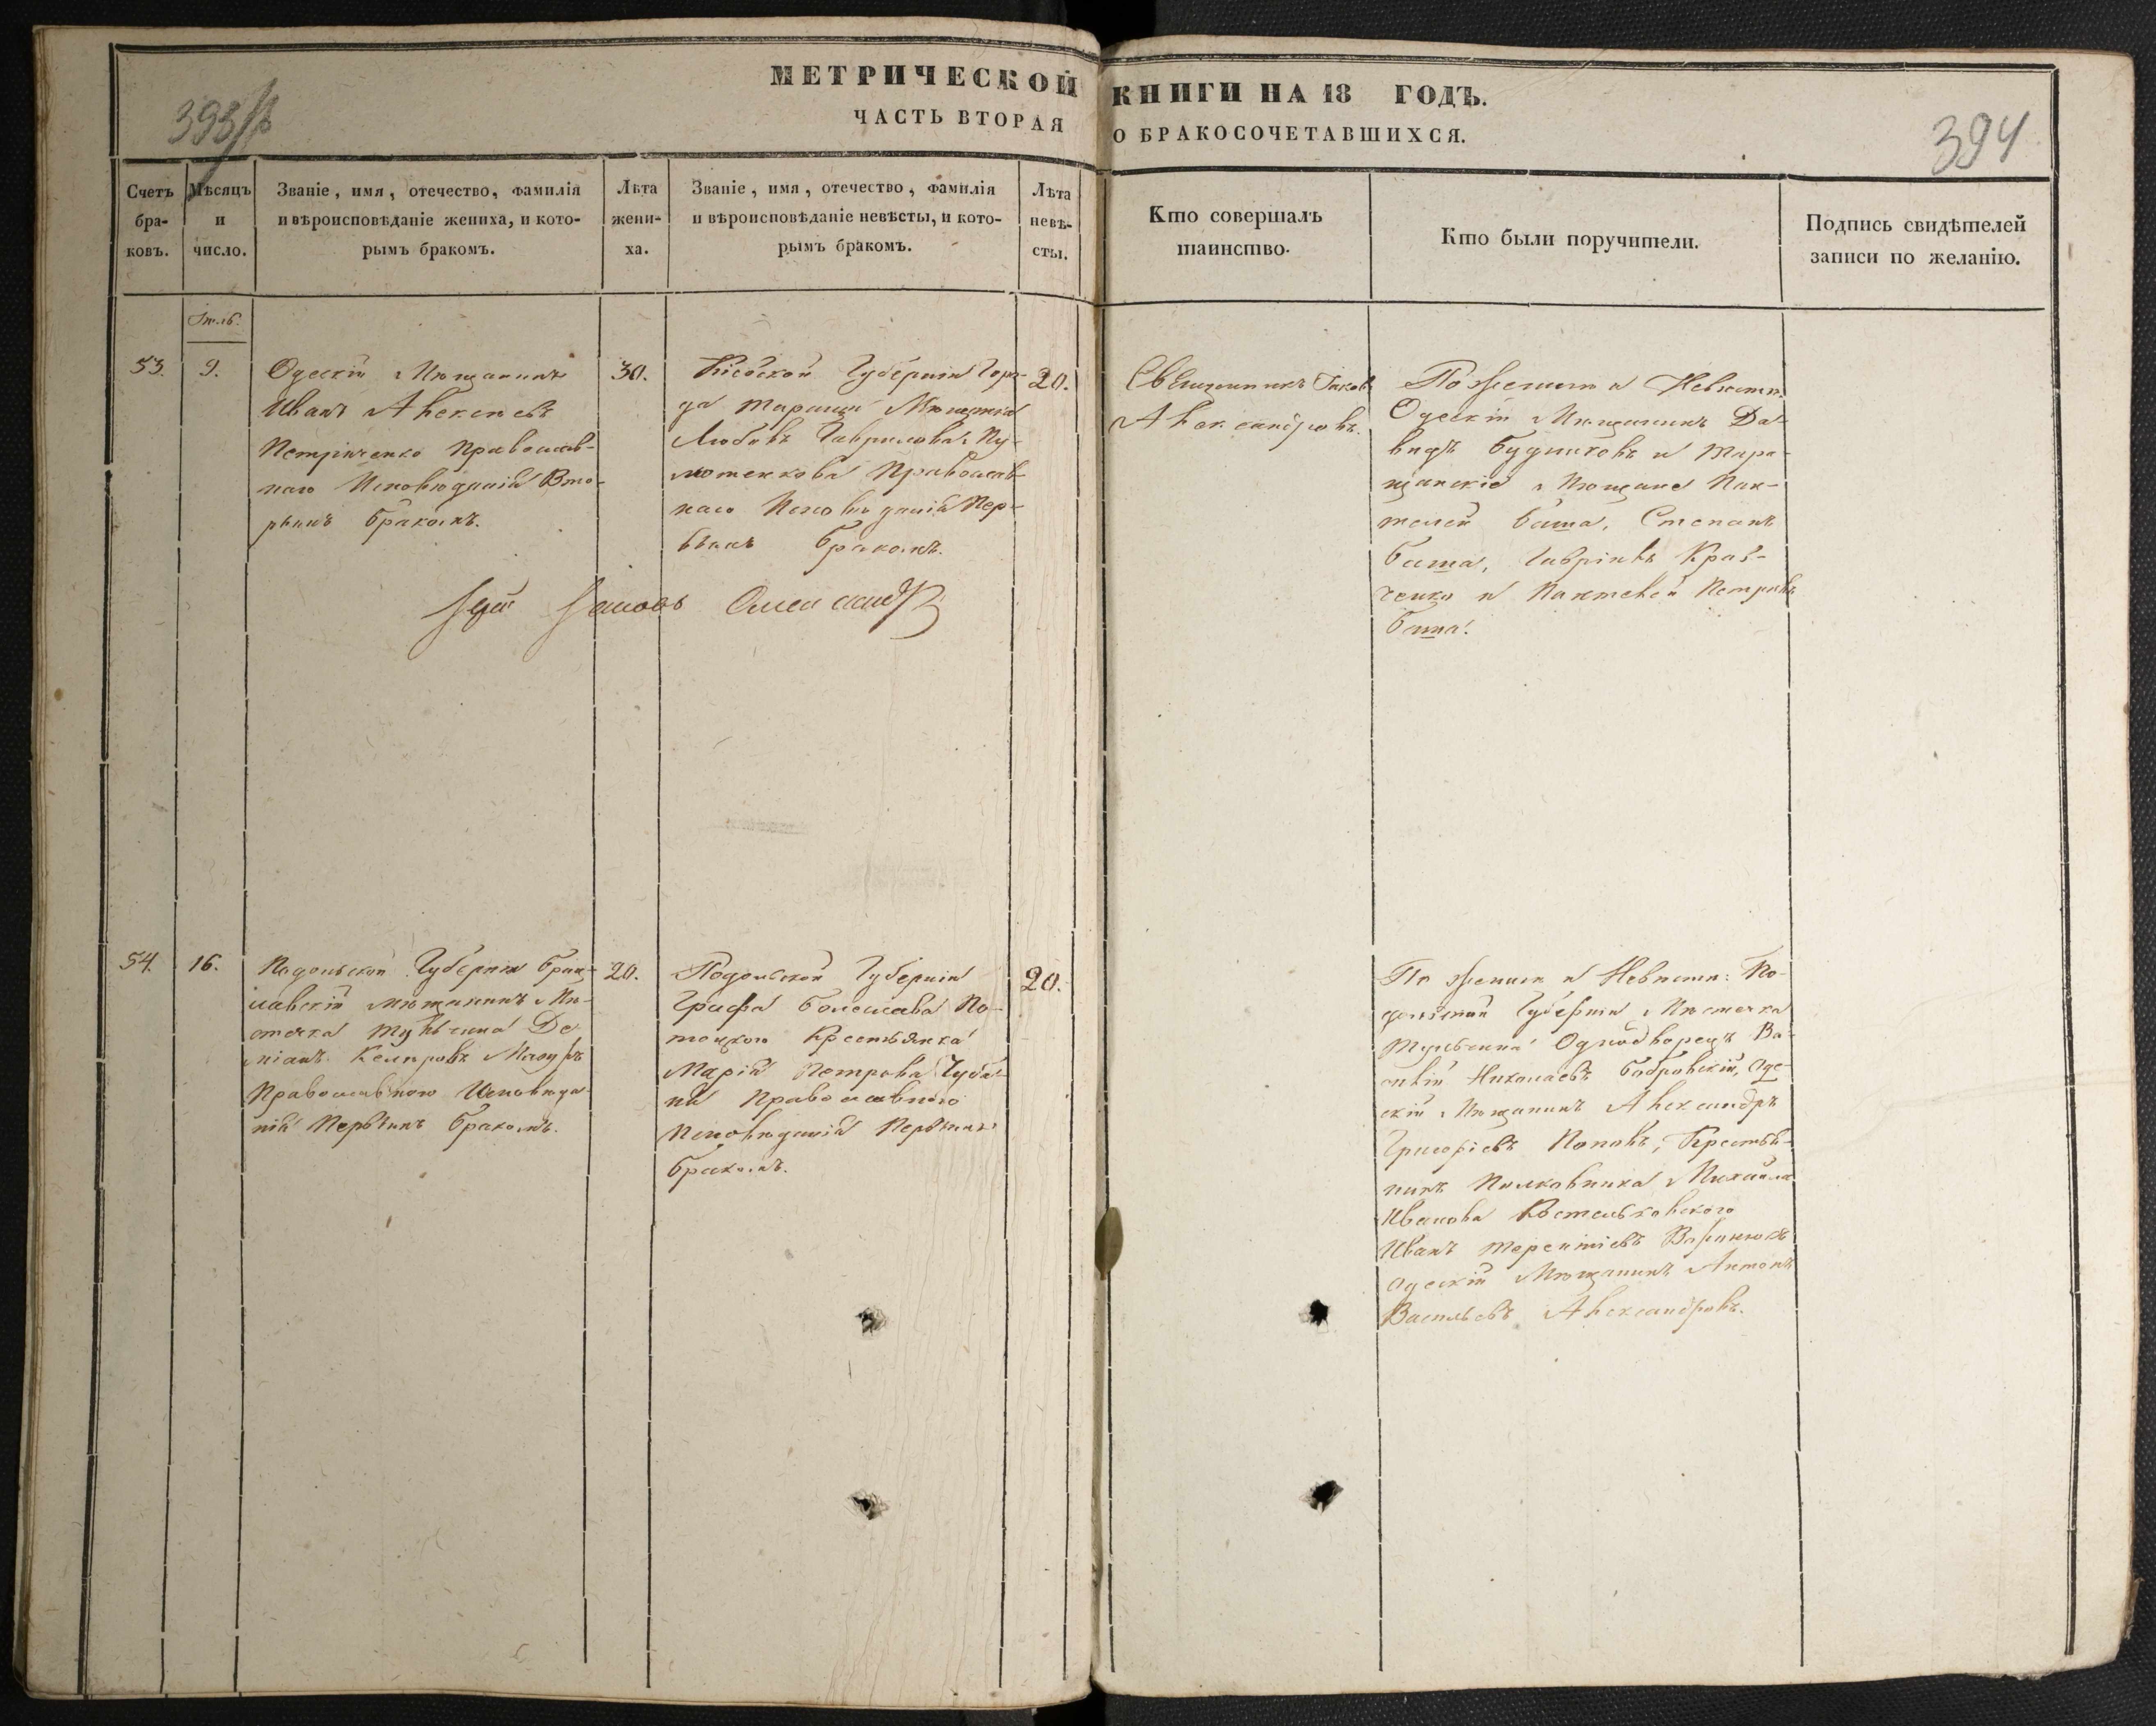 МЕТРИЧЕСКОЙ КНИГИ НА 18 ГОДЪ.
ЧАСТЬ ВТОРАЯ О БРАКОСОЧЕТАВШИХСЯ.
394
Счетъ бра- ковъ.
Мѣсяцъ и число.
Званіе, имя, отечество, фамилія
и вѣроисповѣданіе жениха, и кото-
рымъ бракомъ.
Лѣта жени- ха.
Званіе, имя, отечество, фамилія
и вѣроисповѣданіе невѣсты, и кото-
рымъ бракомъ.
Лѣта невѣ- сты.
Кто совершалъ
таинство.
Кто были поручители.
Подпись свидѣтелей
записи по желанію.
53.
9.
Одескій Мѣщанинъ
Иванъ Алексѣевъ
Петриченко Православ-
наго Исповѣданія Вто-
рымъ бракомъ.
30.
Кіевской Губерніи Горо-
да Таращи Мѣщанка
Любовь Гаврилова
Православ-
наго Исповѣданія Пер-
вымъ бракомъ.
20.
Священникъ Іаковъ
Александровъ.
По Женихѣ и Невѣстѣ
Одескій Мѣщанинъ Да-
видъ Будниковъ и Тара-
щанскіе Мѣщане Пан-
телей Баша, Степанъ
Баша, Гавріилъ Крав-
ченко и Пантелей Петровъ
Баша.
54.
16.
Подольской Губерніи Брац-
лавскій Мѣщанинъ Мѣ-
стечка Тульчина Де-
міанъ Мазуръ
Православного Исповѣда-
нія Первымъ бракомъ.
20.
Подольской Губерніи
Графа Болеслава По-
тоцкого Крестьянка
Марія Петрова
Православного
Исповѣданія Первымъ
бракомъ.
20.
По Женихѣ и Невѣстѣ: По-
дольской Губерніи Мѣстечка
Тульчина Однодворецъ Ва-
силій Николаевъ Бобровскій, Оде-
скій Мѣщанинъ Александръ
Григоріевъ Поповъ, Крестья-
нинъ Полковника Михайла
Иванова
Иванъ Терентіевъ
Одескій Мѣщанинъ Антонъ
Васильевъ Александровъ.